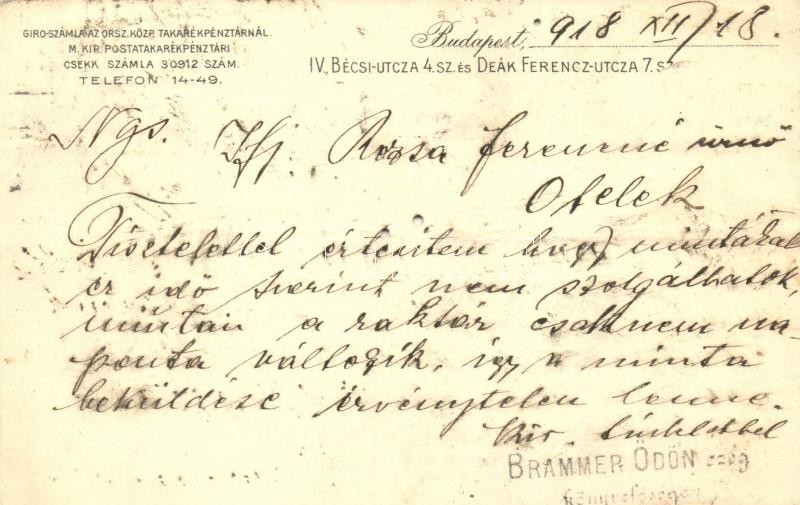 GIRO-SZÁMLA AZ ORSZ. KÖZP. TAKARÉKPÉNZTÁRNÁL.
M. KIR. POSTATAKARÉKPÉNZTÁRI
CSEKK SZÁMLA 30912 SZÁM.
TELEFON 14-49.
Budapest, 918 XII/18.
IV., BÉCSI-UTCZA 4. SZ. ÉS DEÁK FERENCZ-UTCZA 7. S
Ngs. Ifj. Rozsa Ferencné úrnő
Otelek
Tisztelettel értesitem hogy mintákal
ez idő szerint nem szolgálhatok,
miután a raktár csaknem na-
ponta változik, igy a minta
beküldése érvénytelen lenne.
Kiv. tisztelettel
BRAMMER ÖDÖN czég